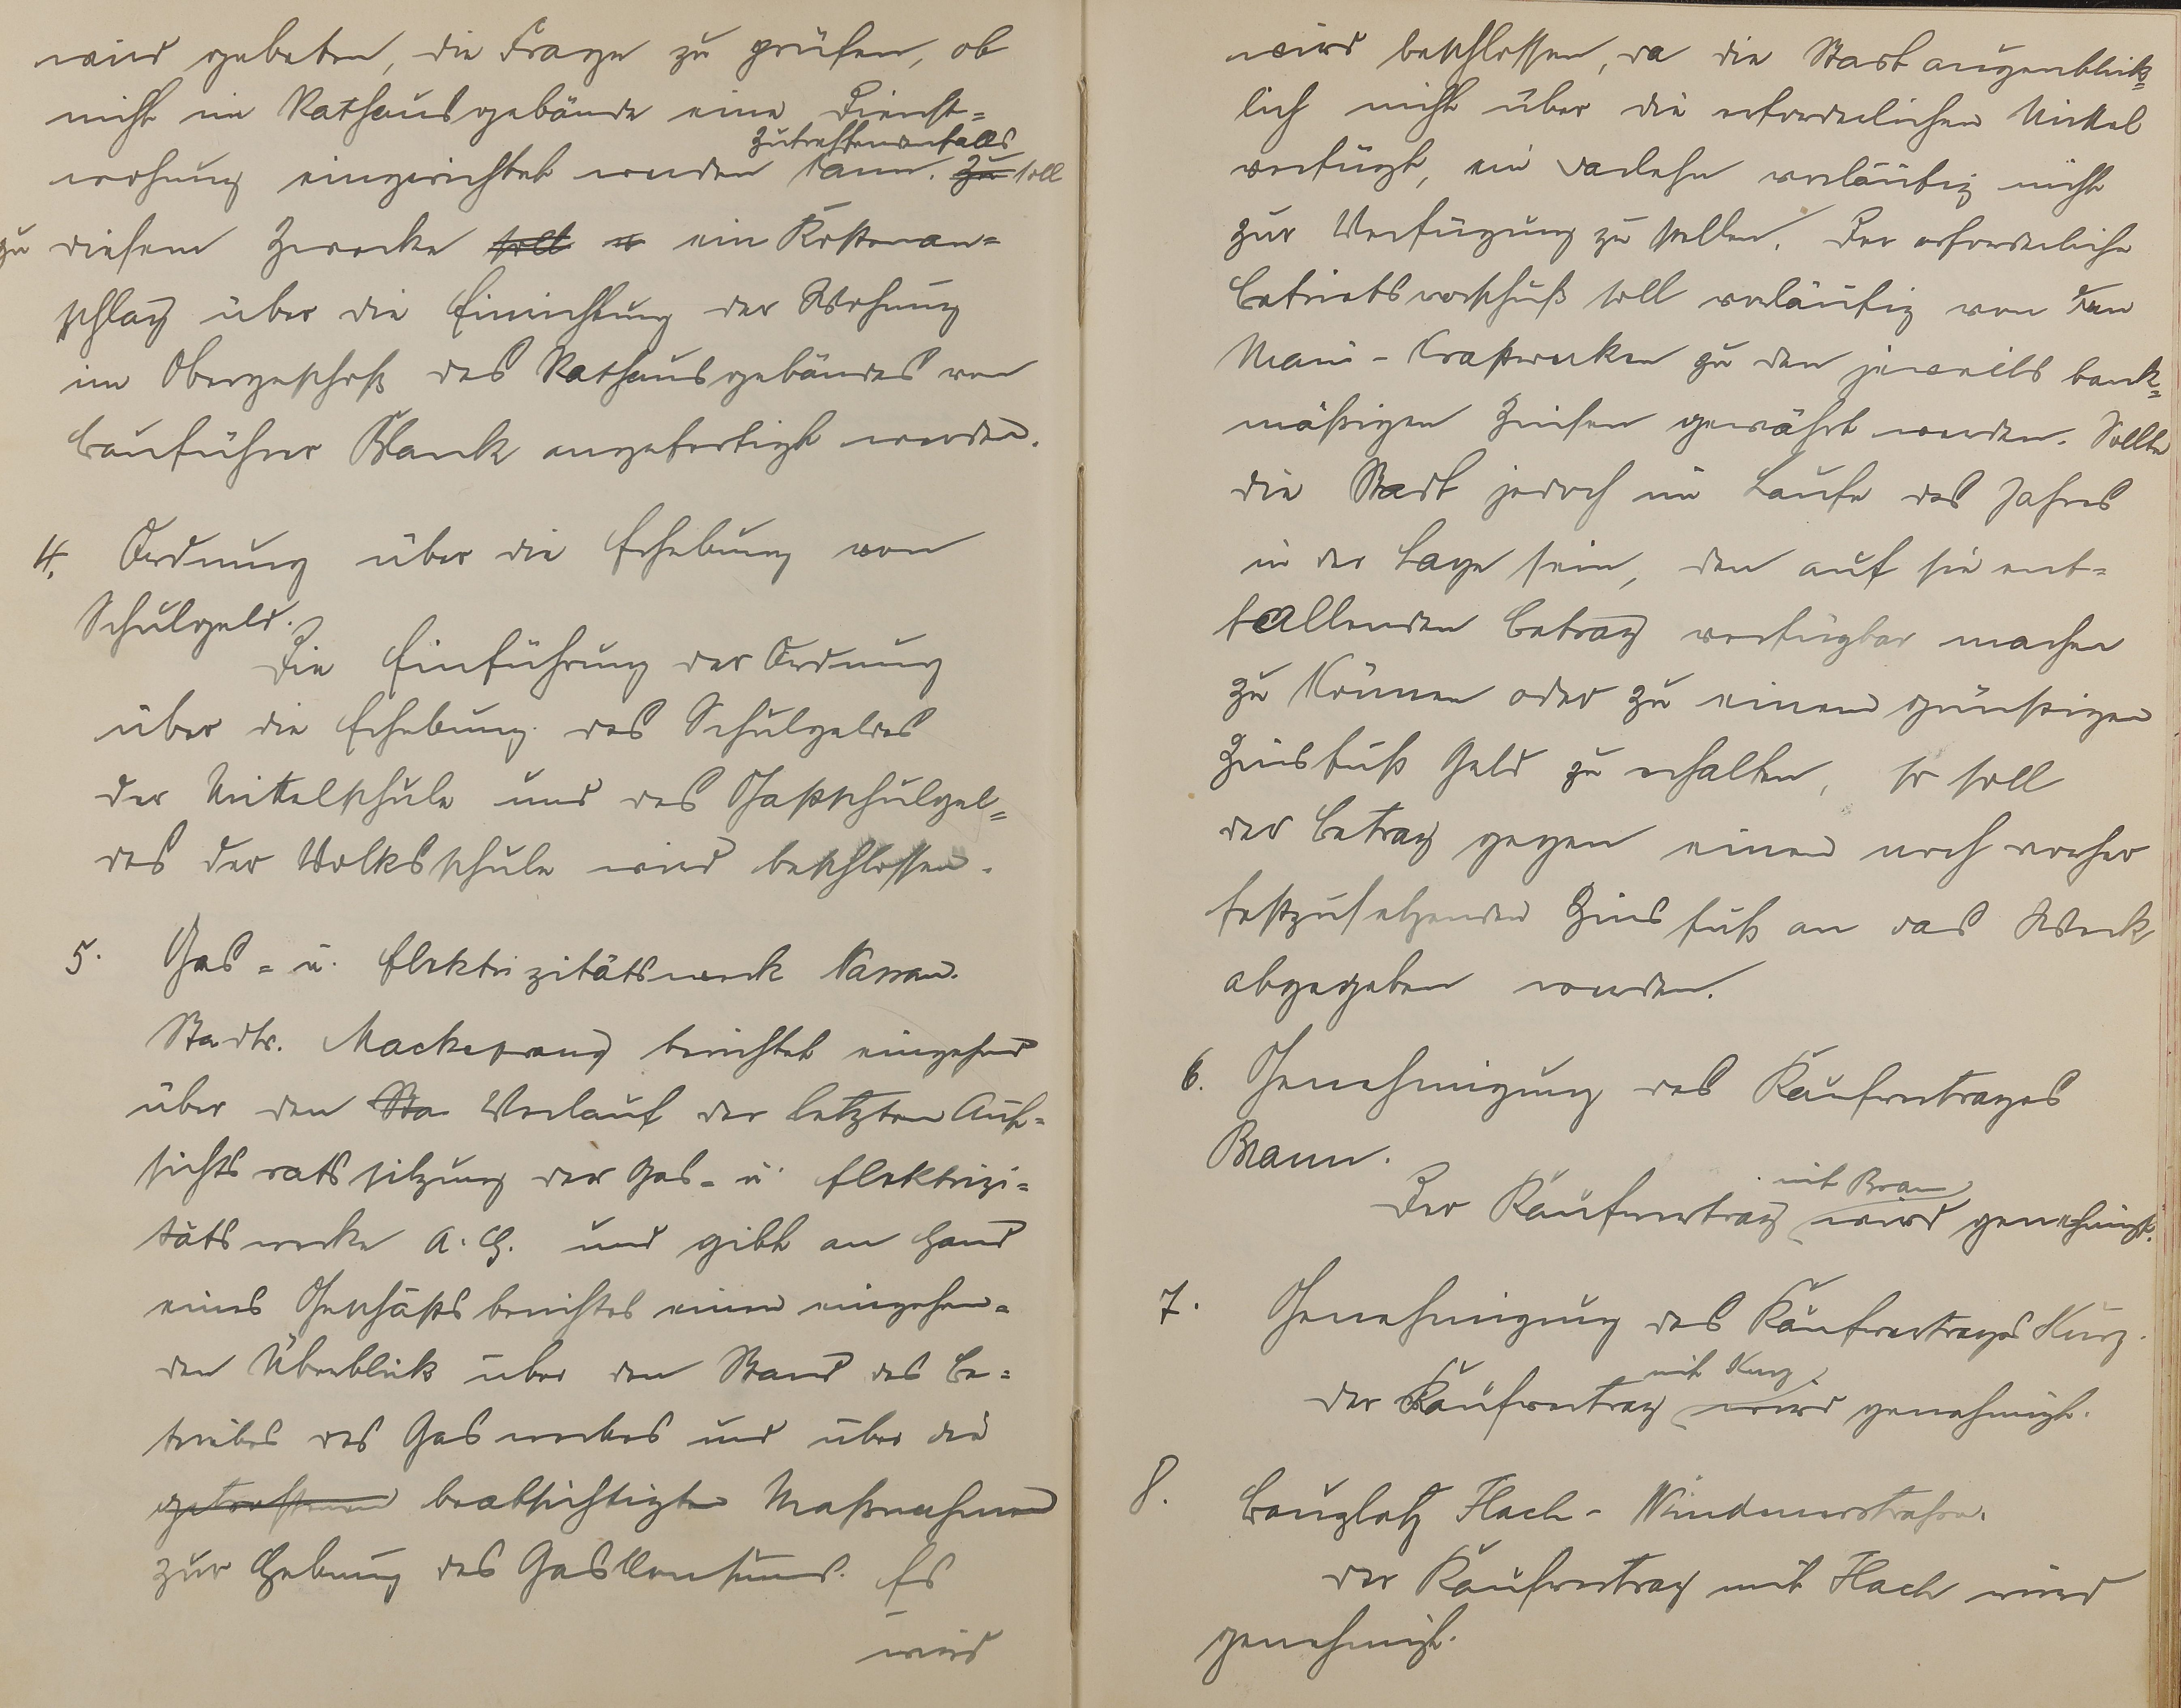 wird gebeten, die Frage zu prüfen, ob
nicht im Rathausgebäude eine Dienst=
zutreffendenfalls
wohnung eingerichtet werden kann. Zu soll
zu diesem Zwecke soll es ein Kostenan=
schlag über die Einrichtung der Wohnung
im Obergeschoß des Rathausgebäudes von
Bauführer Blank angefertigt werden.
4. Ordnung über die Erhebung von
Schulgeld.
Die Einführung der Ordnung
über die Erhebung des Schulgeldes
der Mittelschule und des Gastschulgel=
des der Volksschule wird beschlossen.
5. Gas- u. Elektrizitätswerk Nassau.
Stadtr. Mackeprang berichtet eingehend
über den Sta Verlauf der letzten Auf=
sichtsratssitzung der Gas- u. Elektrizi=
tätswerke A.G. und gibt an Hand
eines Geschäftsberichtes einen eingehen=
den Überblick über den Stand des Be=
triebes des Gaswerkes und über die
getroffenen beabsichtigten Maßnahmen
zur Hebung des Gaskonsums. Es
wird
wird beschlossen, da die Stadt augenblick=
lich nicht über die erforderlichen Mittel
verfügt, ein Darlehn vorläufig nicht
zur Verfügung zu stellen. Der erforderliche
Betriebsvorschuß soll vorläufig von den
Main-Kraftwerken zu den jeweils bank=
mäßigen Zinsen gewährt werden. Sollte
die Stadt jedoch im Laufe des Jahres
in der Lage sein, den auf sie ent=
fallenden Betrag verfügbar machen
zu können oder zu einem günstigen
Zinsfuß Geld zu erhalten, so soll
der Betrag gegen einen noch vorher
festzusetzenden Zinsfuß an das Werk
abgegeben werden.
6. Genehmigung des Kaufvertrages
Braun.
mit Braun
Der Kaufvertrag wird genehmigt.
7. Genehmigung des Kaufvertrages Kurz.
mit Kurz
Der Kaufvertrag wird genehmigt.
8. Bauplatz Flach - Windenerstraße.
Der Kaufvertrag mit Flach wird
genehmigt.